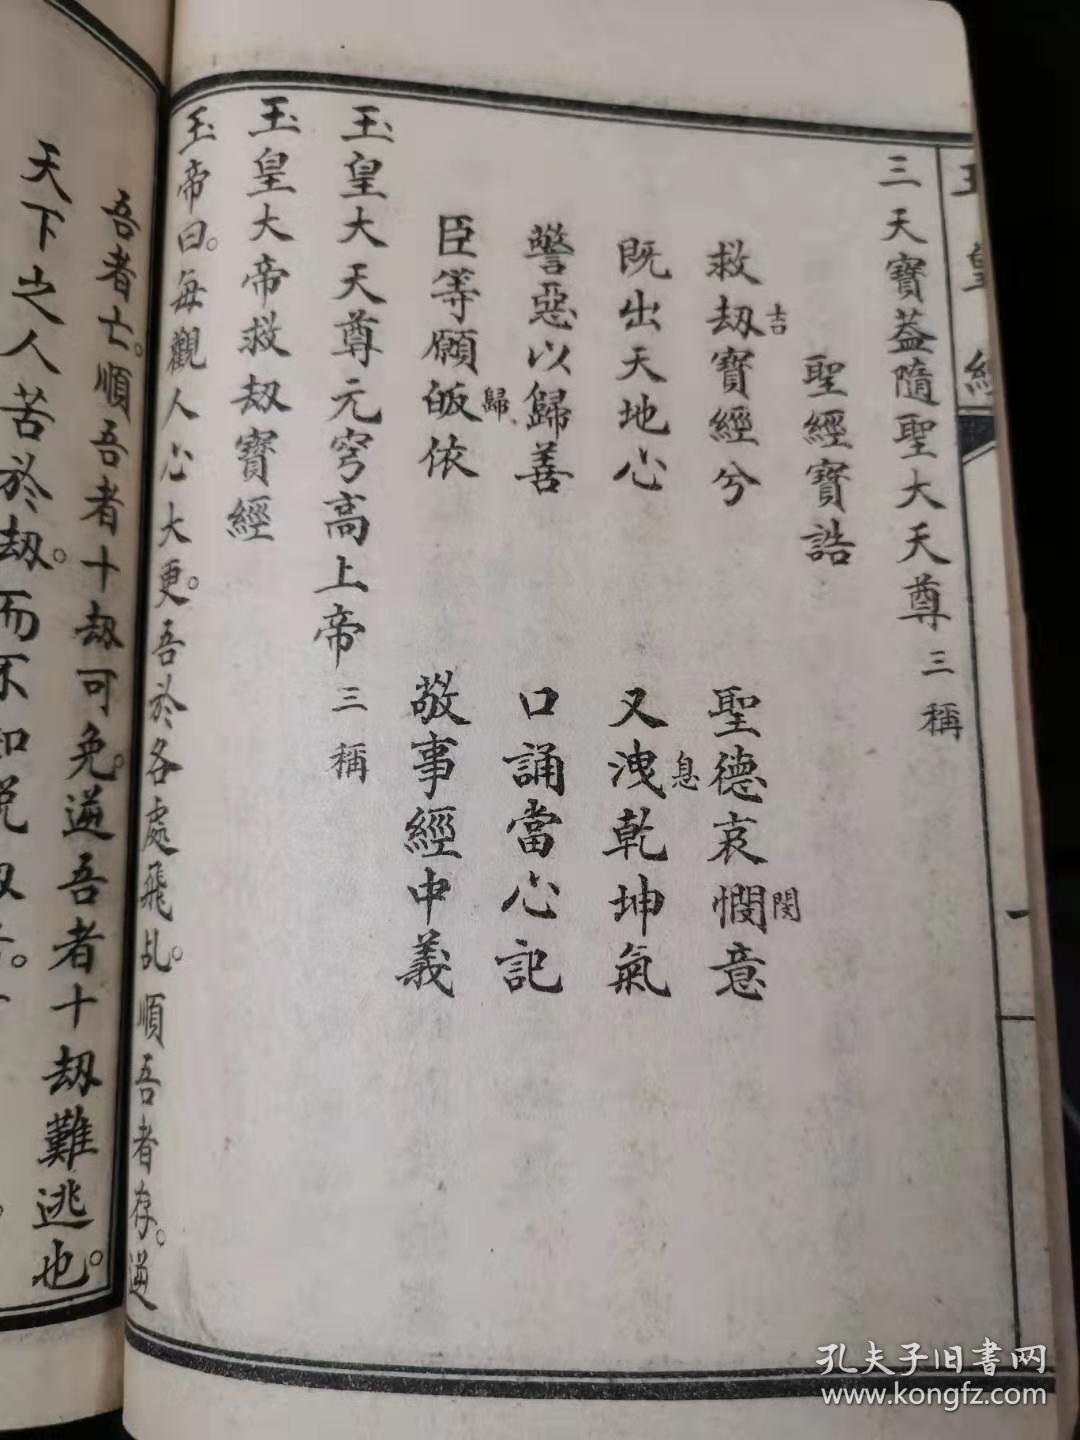 玉皇經
一
三天寶蓋隨聖大天尊 三稱
聖經寶誥
救刼寶經兮 聖德哀憫意
吉 閔
既出天地心 又洩乾坤氣
息
警惡以歸善 口誦當心記
臣等願皈依 敬事經中義
歸
玉皇大天尊元穹高上帝 三稱
玉皇大帝救刼寶經
玉帝曰。每觀人心大更。吾於各處飛乩。順吾者存。逆
吾者亡。順吾者十刼可免。逆吾者十刼難逃也。
天下之人苦於刼。而不知
孔夫子旧書网
www.kongfz.com